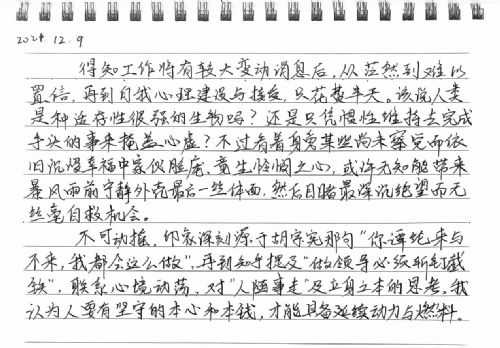 2024 12.9
得知工作将有较大变动消息后，从茫然到难以
置信，再到自我心理建设与接受，只花整半天。该说人类
是种适存性很强的生物吗？还是只凭惯性维持去完成
手头的事来掩盖心虚？不过看着身旁某些尚未察觉而依
旧沉浸幸福中家伙脸庞，竟生怜悯之心，或许无知能带来
暴风雨前宁静外壳最后一丝体面，然后目睹最深沉绝望而无
丝毫自救机会。
不可动摇，印象深刻源于胡宗宪那句“你谭纶来与
不来，我都会这么做”，再到知乎提及“做领导必须斩钉截
铁”，联系心境动荡，对“人随事走”及立身之本的思考，我
认为人要有坚守的本心和本钱，才能具备延续动力与燃料。